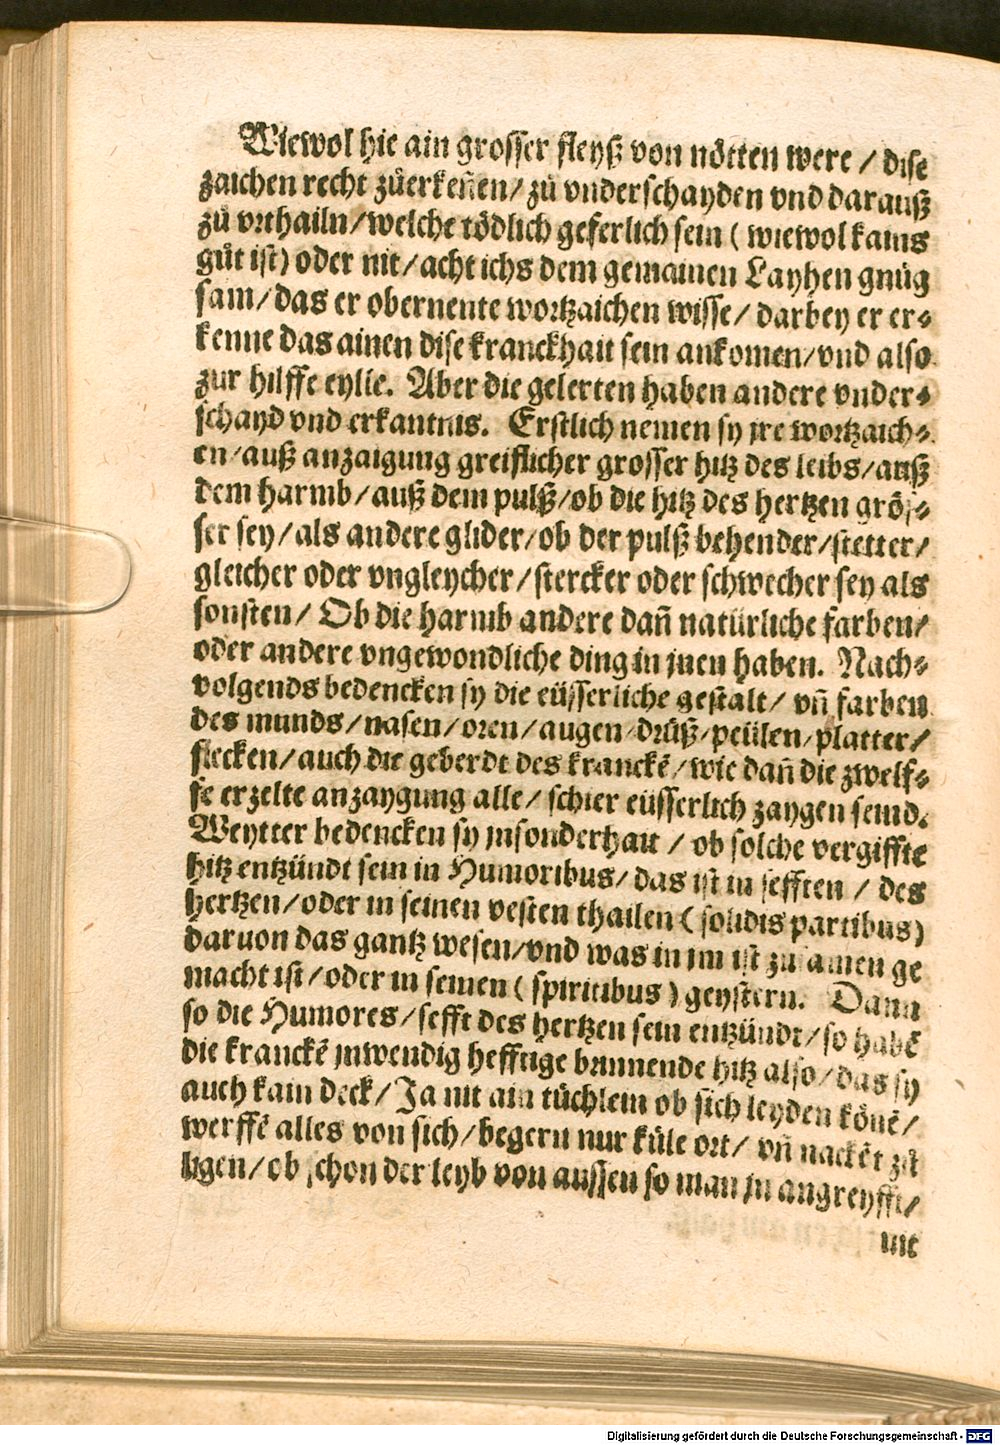 Wiewol hie ain grosser fleyß von nötten were / dise
zaichen recht zůerkeñen / zů vnderschayden vnd darauß
zů vrthailn / welche tödlich geferlich sein ( wiewol kains
gůt ist ) oder nit / acht ichs dem gemainen Layhen gnůg
sam / das er obernente wortzaichen wisse / darbey er er⸗
kenne das ainen dise kranckhait sein ankomen / vnd also
zur hilffe eylie. Aber die gelerten haben andere vnder⸗
schayd vnd erkantnis. Erstlich nemen sy jre wortzaich⸗
en / auß anzaigung greiflicher grosser hitz des leibs / auß
dem harmb / auß dem pulß / ob die hitz des hertzen grös⸗
ser sey / als andere glider / ob der pulß behender / stetter /
gleicher oder vngleycher / stercker oder schwecher sey als
sonsten / Ob die harmb andere dañ natürliche farben /
oder andere vngewondliche ding in jnen haben. Nach⸗
volgends bedencken sy die eüsserliche gestalt / vñ farben
des munds / nasen / oren / augen / drůß / peülen / platter /
flecken / auch die geberdt des kranckē / wie dañ die zwelf⸗
fe erzelte anzaygung alle / schier eüsserlich zaygen seind.
Weytter bedencken sy jnsonderhait / ob solche vergiffte
hitz entzündt sein in Humoribus / das ist in sefften / des
hertzen / oder in seinen vesten thailen ( solidis partibus )
daruon das gantz wesen / vnd was in im ist zusamen ge
macht ist / oder in seinen ( spiritibus ) geystern. Dann
so die Humores / sefft des hertzen sein entzündt / so habē
die kranckē jnwendig hefftige brinnende hitz also / das sy
auch kain deck / Ja nit ain tüchlein ob sich leyden könē /
werffē alles von sich / begern nur küle ort / vñ nackēt zů
ligen / ob schon der leyb von aussen so man jn angreyfft /
nit
Digitalisierung gefördert durch die Deutsche Forschungsgemeinschaft - DFG